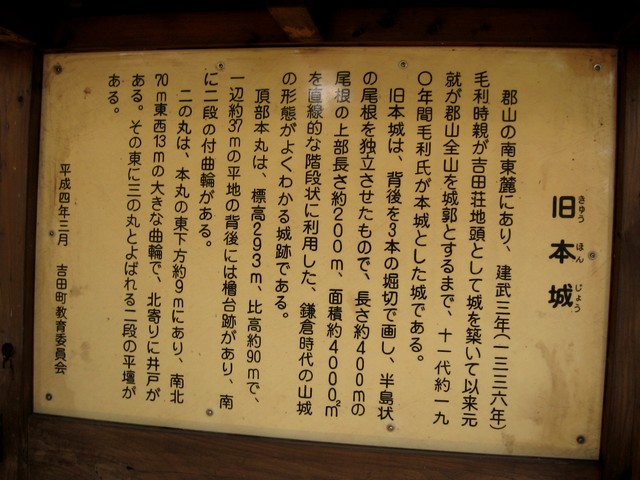 旧本城
きゅう ほん じょう
郡山の南東麓にあり、建武三年(一三三六年)
毛利時親が吉田荘地頭として城を築いて以来元
就が郡山全山を城郭とするまで、十一代約一九
〇年間毛利氏が本城とした城である。
旧本城は、背後を3本の堀切で画し、半島状
の尾根を独立させたもので、長さ約400mの
尾根の上部長さ約200m、面積約4000㎡
を直線的な階段状に利用した、鎌倉時代の山城
の形態がよくわかる城跡である。
頂部本丸は、標高293m、比高約90mで、
一辺約37mの平地の背後には櫓台跡があり、南
に二段の付曲輪がある。
二の丸は、本丸の東下方約9mにあり、南北
70m東西13mの大きな曲輪で、北寄りに井戸が
ある。その東に三の丸とよばれる二段の平壇が
ある。
平成四年三月 吉田町教育委員会